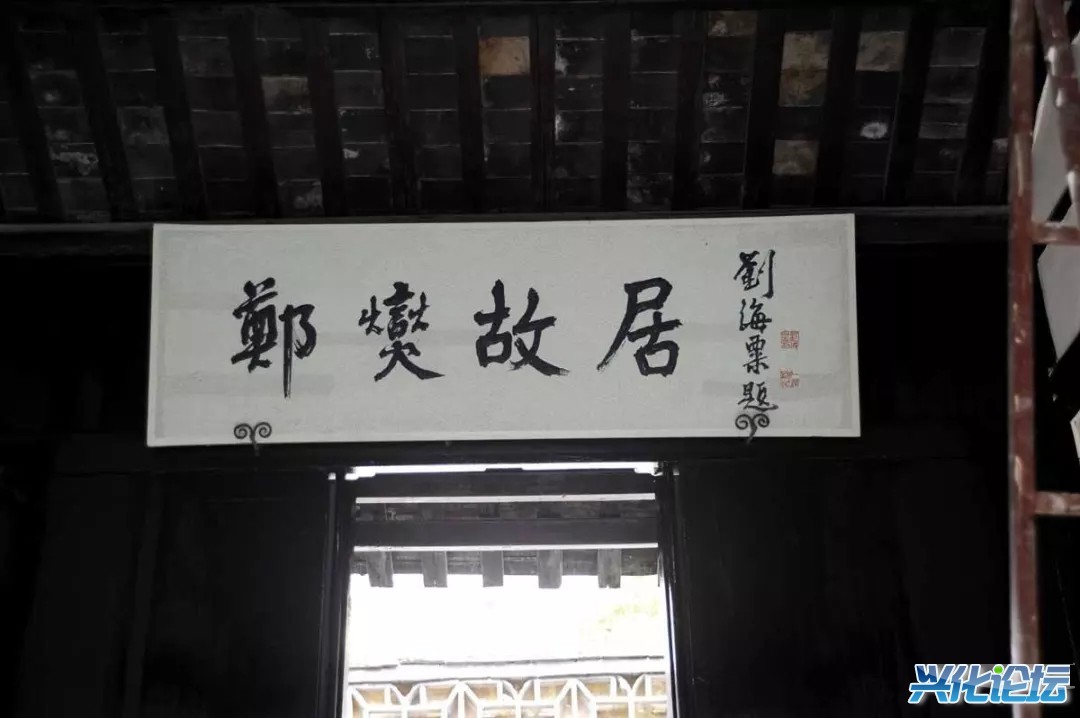 鄭燮故居
劉海粟題
兴化论坛